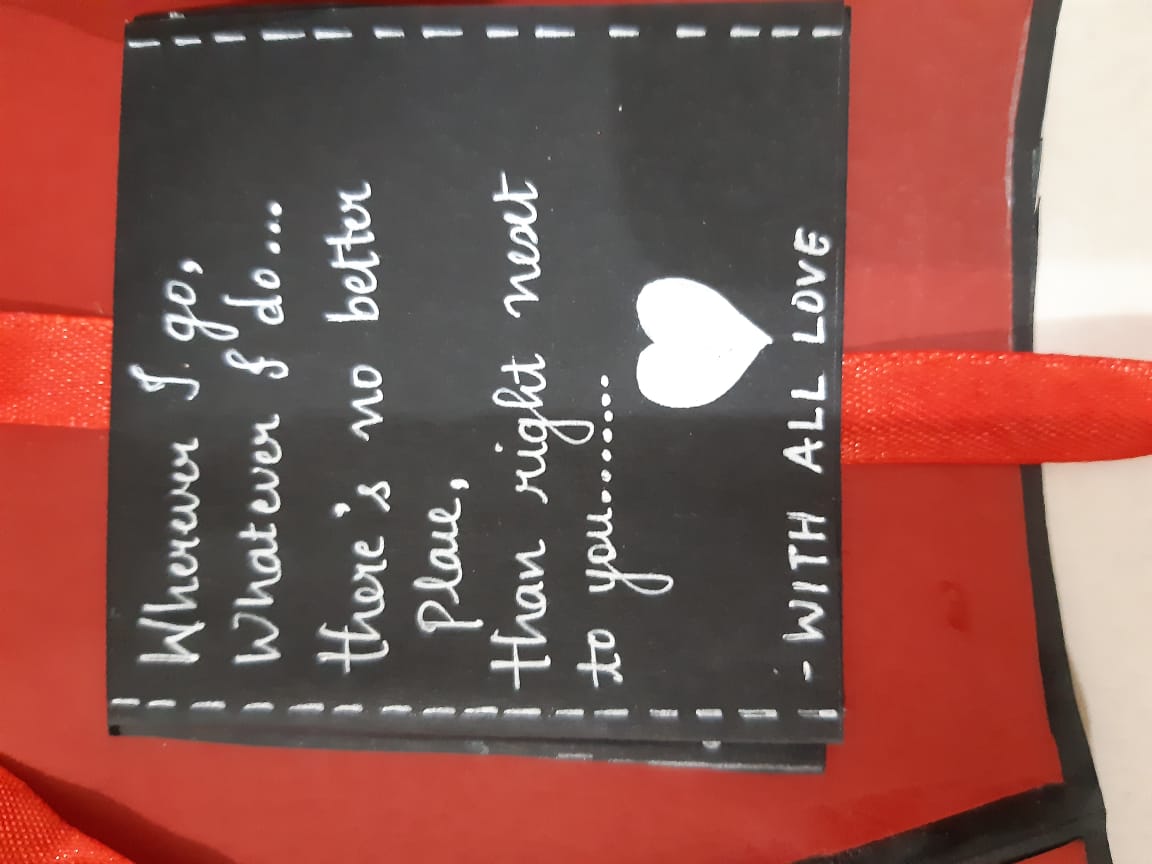 Wherever I go,
Whatever I do...
there's no better
Place,
than right next
to you........
- WITH ALL LOVE